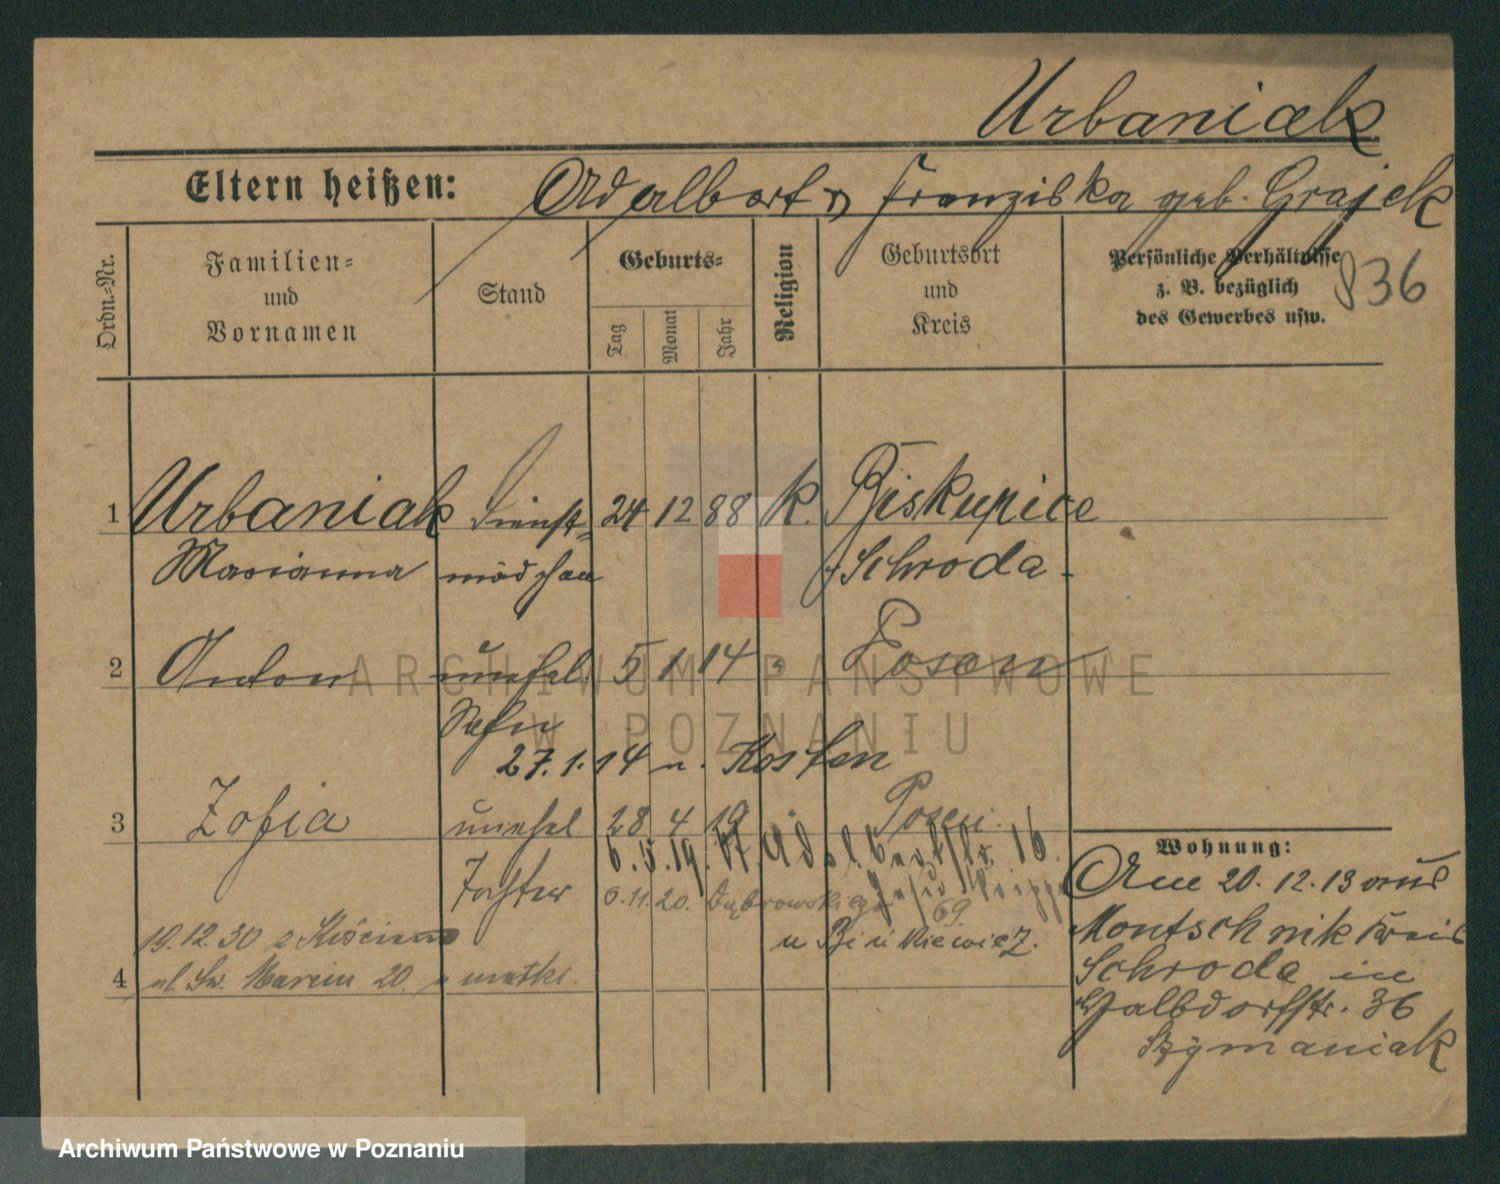 Urbaniak
Eltern heißen: Adalbert u Franziska geb. Grajek
Ordn.-Nr.
Familien-
und
Vornamen
Stand
Geburts-
Tag
Monat
Jahr
Religion
Geburtsort
und
Kreis
Persönliche Verhältnisse
z. B. bezüglich
des Gewerbes usw.
836
1 Urbaniak Dienst- 24 12 88 k. Biskupice
Marianna mädchen Schroda
2 Anton unehel. 5 1 14 " Posen
Sohn
27.1.14 n. Kosten
3 Zofia unehel 28 4 19 " Posen.
6.5.19. 16.
Tochter 6.11.20. Dąbrowskiego 69
u Binkiewicz.
19.12.30 z Kościana
4 ul Św. Marcin 20. u matki.
Wohnung:
Am 20.12.13 aus
Montschnik Kreis
Schroda in
Halbdorfstr. 36
Szymaniak
ARCHIWUM PAŃSTWOWE
W POZNANIU
Archiwum Państwowe w Poznaniu